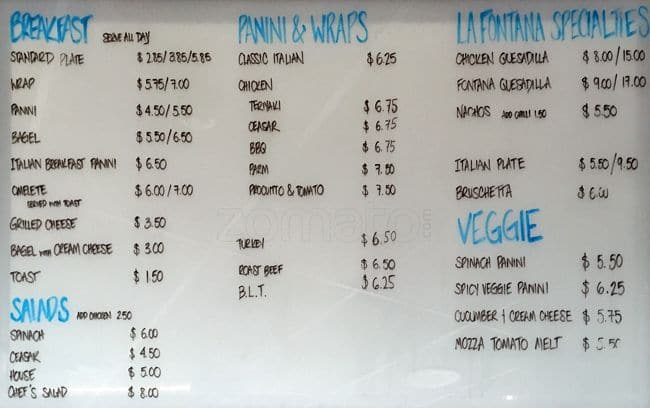 BREAKFAST SERVE ALL DAY
STANDARD PLATE $ 2.85/3.85/5.85
WRAP $ 5.75/7.00
PANINI $ 4.50/5.50
BAGEL $ 5.50/6.50
ITALIAN BREAKFAST PANINI $ 6.50
OMELETE $ 6.00/7.00
SERVED WITH TOAST
GRILLED CHEESE $ 3.50
BAGEL WITH CREAM CHEESE $ 3.00
TOAST $ 1.50
SALADS ADD CHICKEN 2.50
SPINACH $ 6.00
CEASAR $ 4.50
HOUSE $ 5.00
CHEF'S SALAD $ 8.00
PANINI & WRAPS
CLASSIC ITALIAN $ 6.25
CHICKEN
TERIYAKI $ 6.75
CEASAR $ 6.75
BBQ $ 6.75
PARM $ 7.50
PROCUITTO & TOMATO $ 7.50
TURKEY $ 6.50
ROAST BEEF $ 6.50
B.L.T. $ 6.25
LA FONTANA SPECIALTIES
CHICKEN QUESADILLA $ 8.00/15.00
FONTANA QUESADILLA $ 9.00/17.00
NACHOS ADD CHILLI 1.50 $ 5.50
ITALIAN PLATE $ 5.50/9.50
BRUSCHETTA $ 6.00
VEGGIE
SPINACH PANINI $ 5.50
SPICY VEGGIE PANINI $ 6.25
CUCUMBER & CREAM CHEESE $ 5.75
MOZZA TOMATO MELT $ 5.50
zomato.com